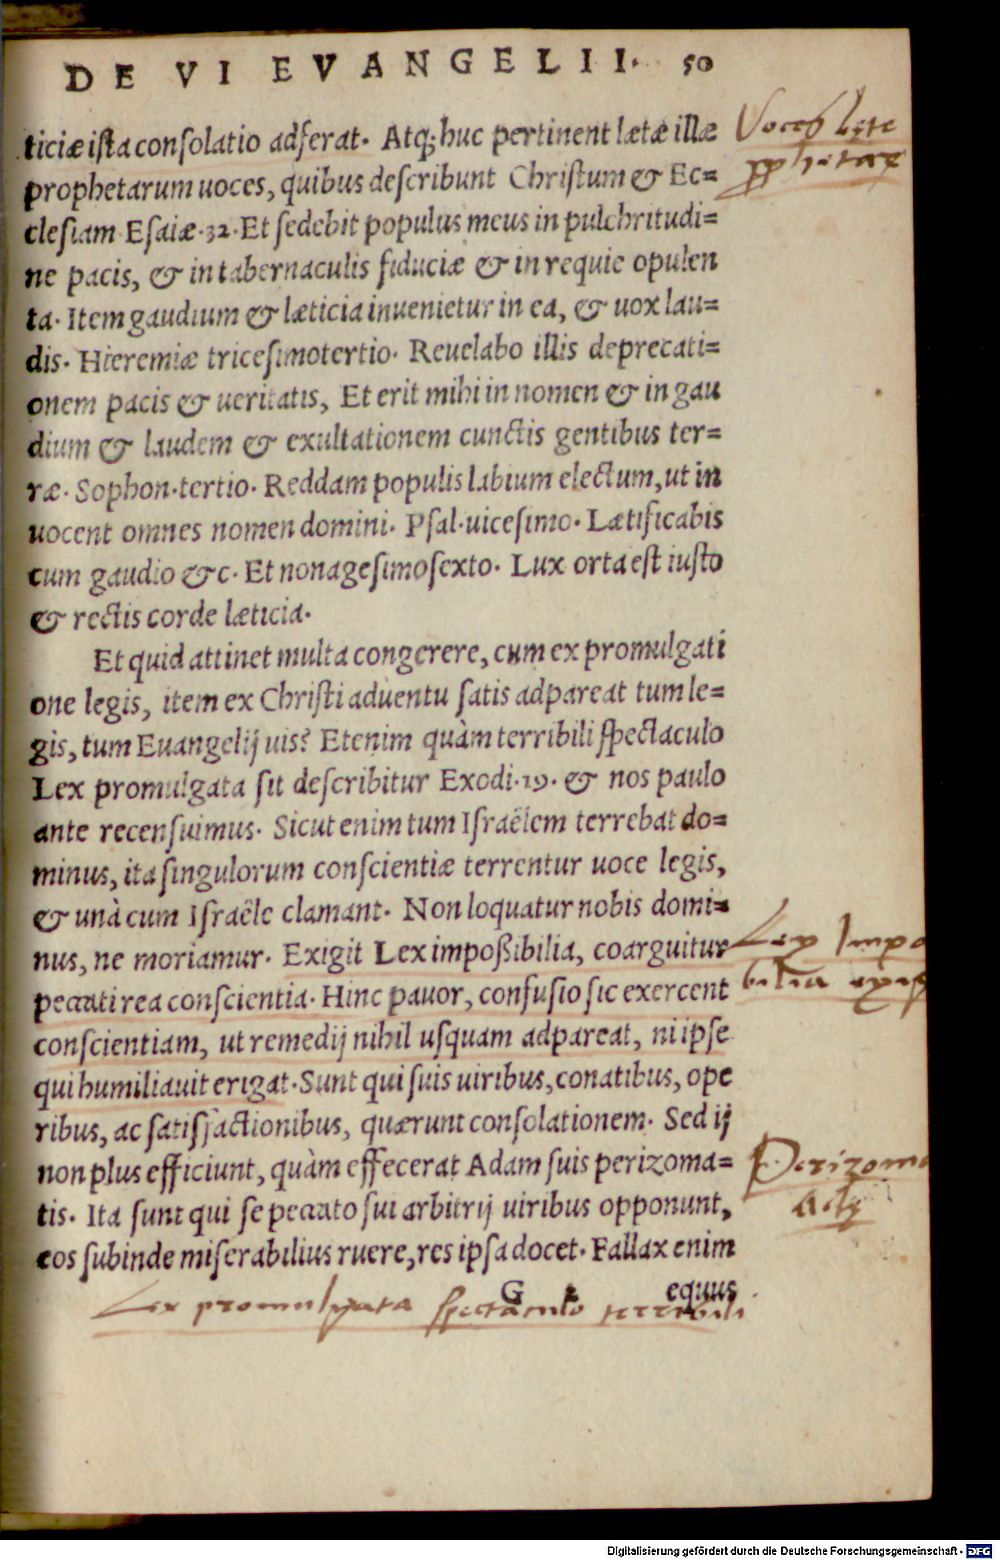 DE VI EVANGELII. 50
ticiæ ista consolatio adferat. Atq; huc pertinent lætæ illæ
prophetarum uoces, quibus describunt Christum & Ec=
clesiam Esaiæ.32. Et sedebit populus meus in pulchritudi=
ne pacis, & in tabernaculis fiduciæ & in requie opulen
ta. Item gaudium & læticia inuenietur in ea, & uox lau=
dis. Hieremiæ tricesimotertio. Reuelabo illis deprecati=
onem pacis & ueritatis, Et erit mihi in nomen & in gau
dium & laudem & exultationem cunctis gentibus ter=
ræ. Sophon.tertio. Reddam populis labium electum, ut in
uocent omnes nomen domini. Psal.uicesimo. Lætificabis
eum gaudio &c. Et nonagesimosexto. Lux orta est iusto
& rectis corde læticia.
Et quid attinet multa congerere, cum ex promulgati
one legis, item ex Christi aduentu satis adpareat tum le=
gis, tum Euangelij uis? Etenim quàm terribili spectaculo
Lex promulgata sit describitur Exodi.19. & nos paulo
ante recensuimus. Sicut enim tum Israëlem terrebat do=
minus, ita singulorum conscientiæ terrentur uoce legis,
& unà cum Israële clamant. Non loquatur nobis domi=
nus, ne moriamur. Exigit Lex impoßibilia, coarguitur
peccati rea conscientia. Hinc pauor, confusio sic exercent
conscientiam, ut remedij nihil usquam adpareat, ni ipse
qui humiliauit erigat. Sunt qui suis uiribus, conatibus, ope
ribus, ac satisfactionibus, quærunt consolationem. Sed ij
non plus efficiunt, quàm effecerat Adam suis perizoma=
tis. Ita sunt qui se peccato sui arbitrij uiribus opponunt,
eos subinde miserabilius ruere, res ipsa docet. Fallax enim
G 2 equus
Voces lete
Lex Impo
bilia
Perizoma
Lex promulgata spectaculo terribili
Digitalisierung gefördert durch die Deutsche Forschungsgemeinschaft - DFG